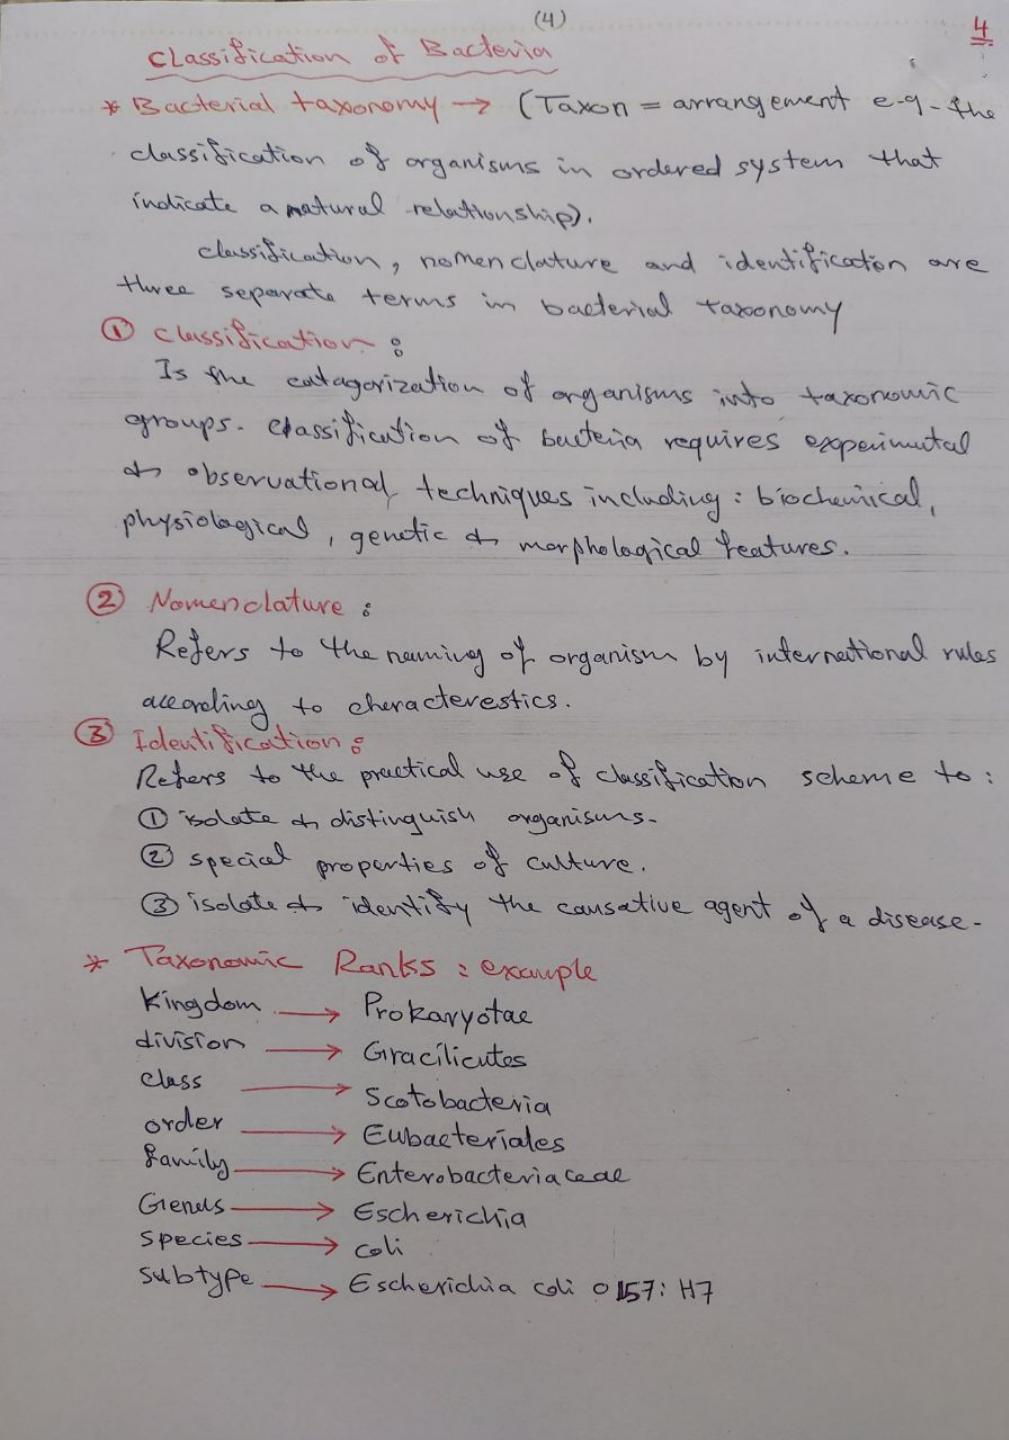 (4)
4
Classification of Bacteria
* Bacterial taxonomy → (Taxon = arrangement e-g- the
classification of organisms in ordered system that
indicate a natural relationship).
classification, nomenclature and identification are
three separate terms in bacterial taxonomy
① classification :
Is the catagorization of organisms into taxonomic
groups. classification of bacteria requires experimental
& observational techniques including : biochemical,
physiological, genetic & morphological features.
② Nomenclature :
Refers to the naming of organism by international rules
according to characterestics.
③ Identification :
Refers to the practical use of classification scheme to :
① isolate & distinguish organisms-
② special properties of culture.
③ isolate & identify the causative agent of a disease-
* Taxonomic Ranks : example
Kingdom → Prokaryotae
division → Gracilicutes
class → Scotobacteria
order → Eubacteriales
family → Enterobacteriaceae
Genus → Escherichia
species → coli
subtype → Escherichia coli O157: H7